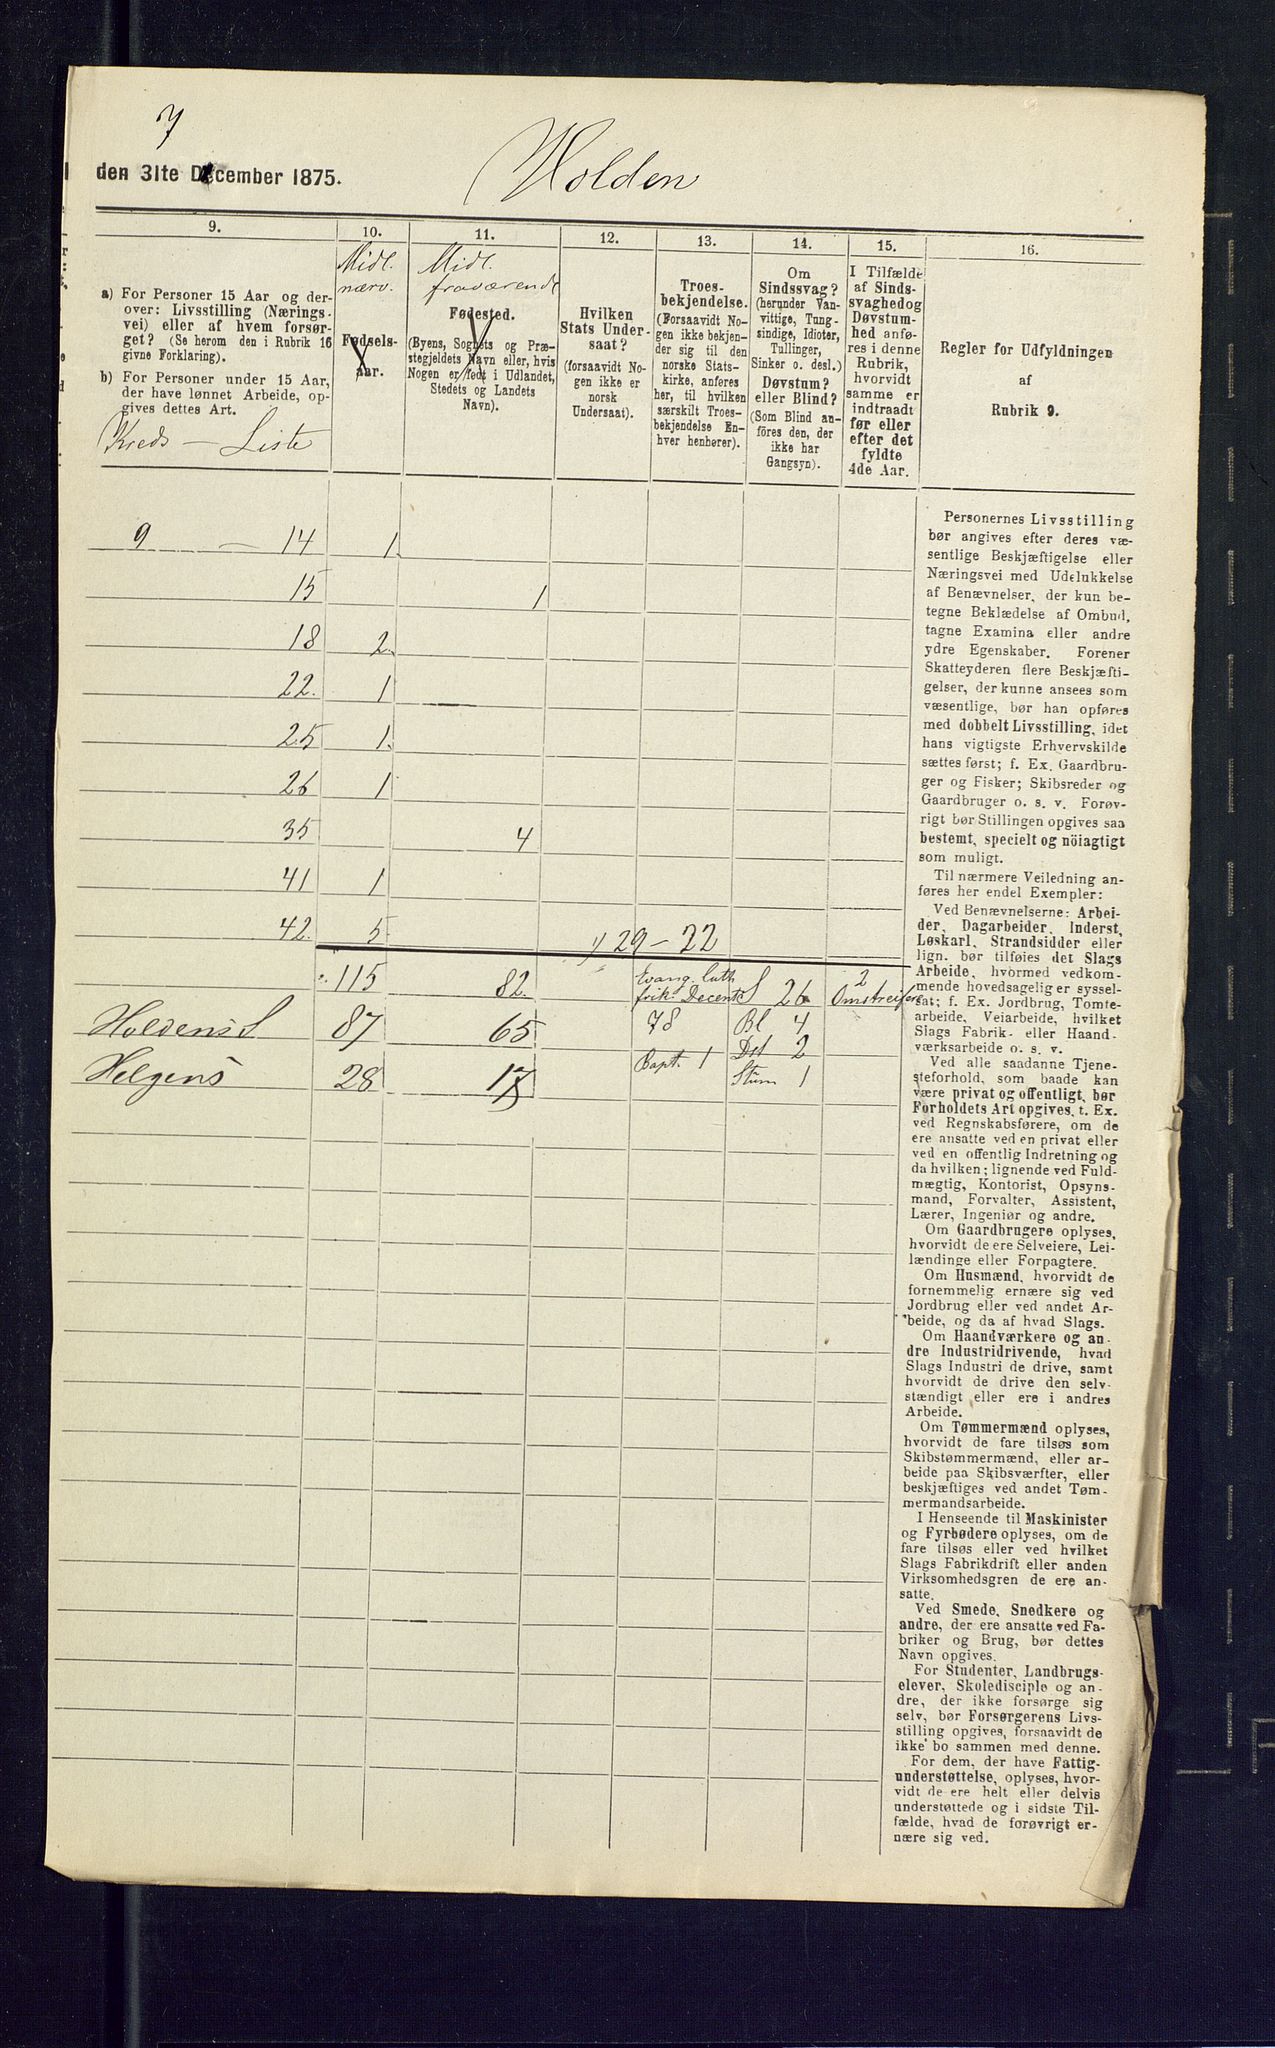 7
den 31te December 1875.
Holden
9.
10.
11.
12.
13.
14.
15.
16.
Midl. nærv.
Midl. fraværende
a) For Personer 15 Aar og der-
over: Livsstilling (Nærings-
vei) eller af hvem forsør-
get? (Se herom den i Rubrik 16
givne Forklaring).
b) For Personer under 15 Aar,
der have lønnet Arbeide, op-
gives dettes Art.
Kreds — Liste
Fødsels-
aar.
Fødested.
(Byens, Sognets og Præ-
stegjeldets Navn eller, hvis
Nogen er født i Udlandet,
Stedets og Landets
Navn).
Hvilken
Stats Under-
saat?
(forsaavidt No-
gen ikke er
norsk
Undersaat).
Troes-
bekjendelse.
(Forsaavidt No-
gen ikke bekjen-
der sig til den
norske Stats-
kirke, anføres
her, til hvilken
særskilt Troes-
bekjendelse En-
hver henhører).
Om
Sindssvag?
(herunder Van-
vittige, Tung-
sindige, Idioter,
Tullinger,
Sinker o. desl.)
Døvstum?
eller Blind?
(Som Blind an-
föres den, der
ikke har
Gangsyn).
I Tilfælde
af Sinds-
svaghedog
Døvstum-
hed anfø-
res i denne
Rubrik,
hvorvidt
samme er
indtraadt
før eller
efter det
fyldte
4de Aar.
Regler for Udfyldningen
af
Rubrik 9.
9 — 14 1
15 1
18 2
22. 1
25 1
26 1
35 4
41 1
42. 5 29 — 22
115 82 Evang. luth. frik. Decent. S 26 2 Omstreifere
Holdens S 87 65 78 Bl 4
Dst 2
Helgens 28 17 Bapt. 1 Stum 1
Personernes Livsstilling
bør angives efter deres væ-
sentlige Beskjæftigelse eller
Næringsvei med Udelukkelse
af Benævnelser, der kun be-
tegne Beklædelse af Ombud,
tagne Examina eller andre
ydre Egenskaber. Forener
Skatteyderen flere Beskjæfti-
gelser, der kunne ansees som
væsentlige, bør han opføres
med dobbelt Livsstilling, idet
hans vigtigste Erhvervskilde
sættes først; f. Ex. Gaardbru-
ger og Fisker; Skibsreder og
Gaardbruger o. s. v. Forøv-
rigt bør Stillingen opgives saa
bestemt, specielt og nöiagtigt
som muligt.
Til nærmere Veiledning an-
føres her endel Exempler:
Ved Benævnelserne: Arbei-
der, Dagarbeider, Inderst,
Løskarl, Strandsidder eller
lign. bør tilføies det Slags
Arbeide, hvormed vedkom-
mende hovedsagelig er syssel-
sat; f. Ex. Jordbrug, Tomte-
arbeide, Veiarbeide, hvilket
Slags Fabrik- eller Haand-
værksarbeide o. s. v.
Ved alle saadanne Tjene-
steforhold, som baade kan
være privat og offentligt, bør
Forholdets Art opgives, t. Ex.
ved Regnskabsførere, om de
ere ansatte ved en privat eller
ved en offentlig Indretning og
da hvilken; lignende ved Fuld-
mægtig, Kontorist, Opsyns-
mand, Forvalter, Assistent,
Lærer, Ingeniør og andre.
Om Gaardbrugere oplyses,
hvorvidt de ere Selveiere, Lei-
lændinge eller Forpagtere.
Om Husmænd, hvorvidt de
fornemmelig ernære sig ved
Jordbrug eller ved andet Ar-
beide, og da af hvad Slags.
Om Haandværkere og an-
dre Industridrivende, hvad
Slags Industri de drive, samt
hvorvidt de drive den selv-
stændigt eller ere i andres
Arbeide.
Om Tømmermænd oplyses,
hvorvidt de fare tilsøs som
Skibstømmermænd, eller ar-
beide paa Skibsværfter, eller
beskjæftiges ved andet Tøm-
mermandsarbeide.
I Henseende til Maskinister
og Fyrbødere oplyses, om de
fare tilsøs eller ved hvilket
Slags Fabrikdrift eller anden
Virksomhedsgren de ere an-
satte.
Ved Smede, Snedkere og
andre, der ere ansatte ved Fa-
briker og Brug, bør dettes
Navn opgives.
For Studenter, Landbrugs-
elever, Skoledisciple og an-
dre, der ikke forsørge sig
selv, bør Forsørgerens Livs-
stilling opgives, forsaavidt de
ikke bo sammen med denne.
For dem, der have Fattig-
understøttelse, oplyses, hvor-
vidt de ere helt eller delvis
understøttede og i sidste Til-
fælde, hvad de forøvrigt er-
nære sig ved.